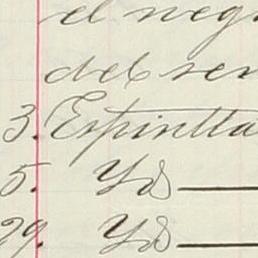 el neg
del ser
3. Espiritta
5. Yd
29. Yd